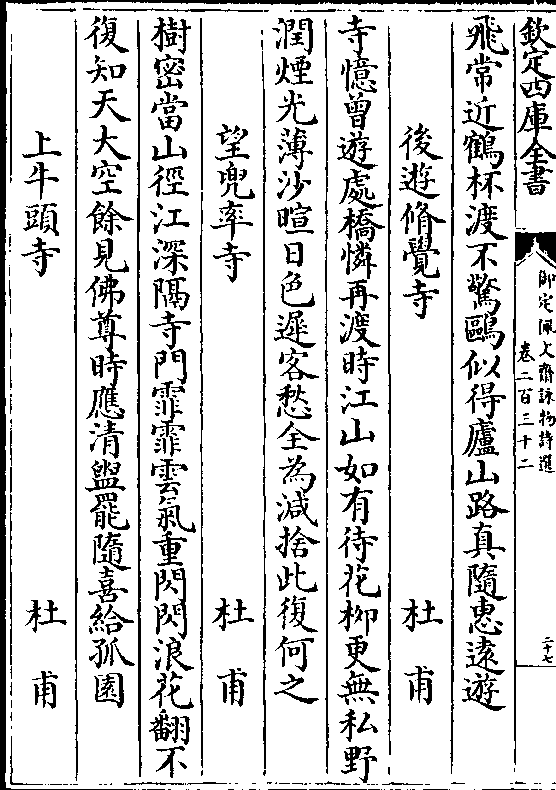 欽定四庫全書
御定佩文齋詠物詩選
卷二百三十二
二十七
飛常近鶴杯渡不驚鷗似得廬山路真隨惠遠遊
後遊脩覺寺 杜甫
寺憶曾遊處橋憐再渡時江山如有待花柳更無私野
潤煙光薄沙暄日色遲客愁全為減捨此復何之
望兜率寺 杜甫
樹密當山徑江深隔寺門霏霏雲氣重閃閃浪花翻不
復知天大空餘見佛尊時應清盥罷隨喜給孤園
上牛頭寺 杜甫